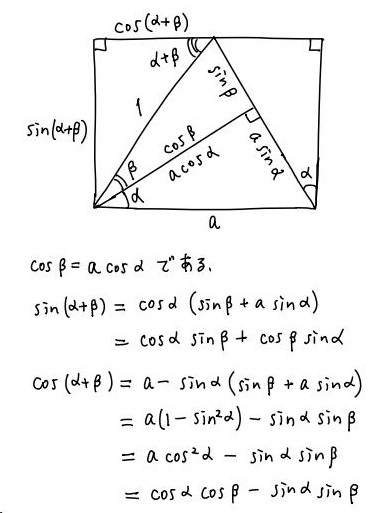 cos(α+β)
α+β
sinβ
1
sin(α+β)
cosβ
a cosα
a sinα
β
α
α
a
cosβ = a cosα である.
sin(α+β) = cosα (sinβ + a sinα)
= cosα sinβ + cosβ sinα
cos(α+β) = a − sinα (sinβ + a sinα)
= a(1 − sin²α) − sinα sinβ
= a cos²α − sinα sinβ
= cosα cosβ − sinα sinβ